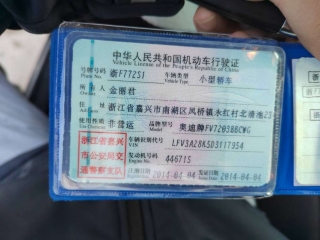 中华人民共和国机动车行驶证
Vehicle License of the People's Republic of China
号牌号码 浙F772S1 车辆类型 小型轿车
Plate No. Vehicle Type
所有人 金丽君
Owner
住址 浙江省嘉兴市南湖区凤桥镇永红村北
Address
使用性质 非营运 品牌型号 奥迪牌FV7203BBCWG
Use Character Model
浙江省嘉兴市公安局交通警察支队
车辆识别代号 LFV3A28K5D3177954
VIN
发动机号码 446715
Engine No.
注册日期 2014-04-04 发证日期 2014-04-04
Register Date Issue Date